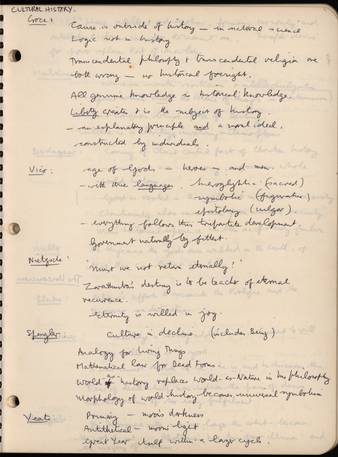 CULTURAL HISTORY.
Croce:
Cause is outside of history — in natural science
Logic not in history
Transcendental philosophy & transcendental religion are
both wrong — no historical foresight.
All genuine knowledge is historical knowledge.
Liberty creates & is the subject of history
— an explanatory principle and a moral ideal.
constructed by individuals.
Vico:
age of Gods — heroes — and men.
— with three languages hieroglyphic (sacred)
symbolic (figurative)
epistolary (vulgar)
— everything follows this tripartite development
Government naturally by fittest.
Nietzsche:
'Must we not return eternally?'
Zarathustra's destiny is to be teacher of eternal
recurrence.
— Eternity is willed in joy.
Spengler
Culture in decline (includes Being)
Analogy for living things
Mathematical law for dead forms.
World as history replaces world-as-Nature in his philosophy
Morphology of world-history becomes universal symbolism
Yeats:
Primary — moon's darkness
Antithetical — moonlight
Great Year itself within a larger cycle.